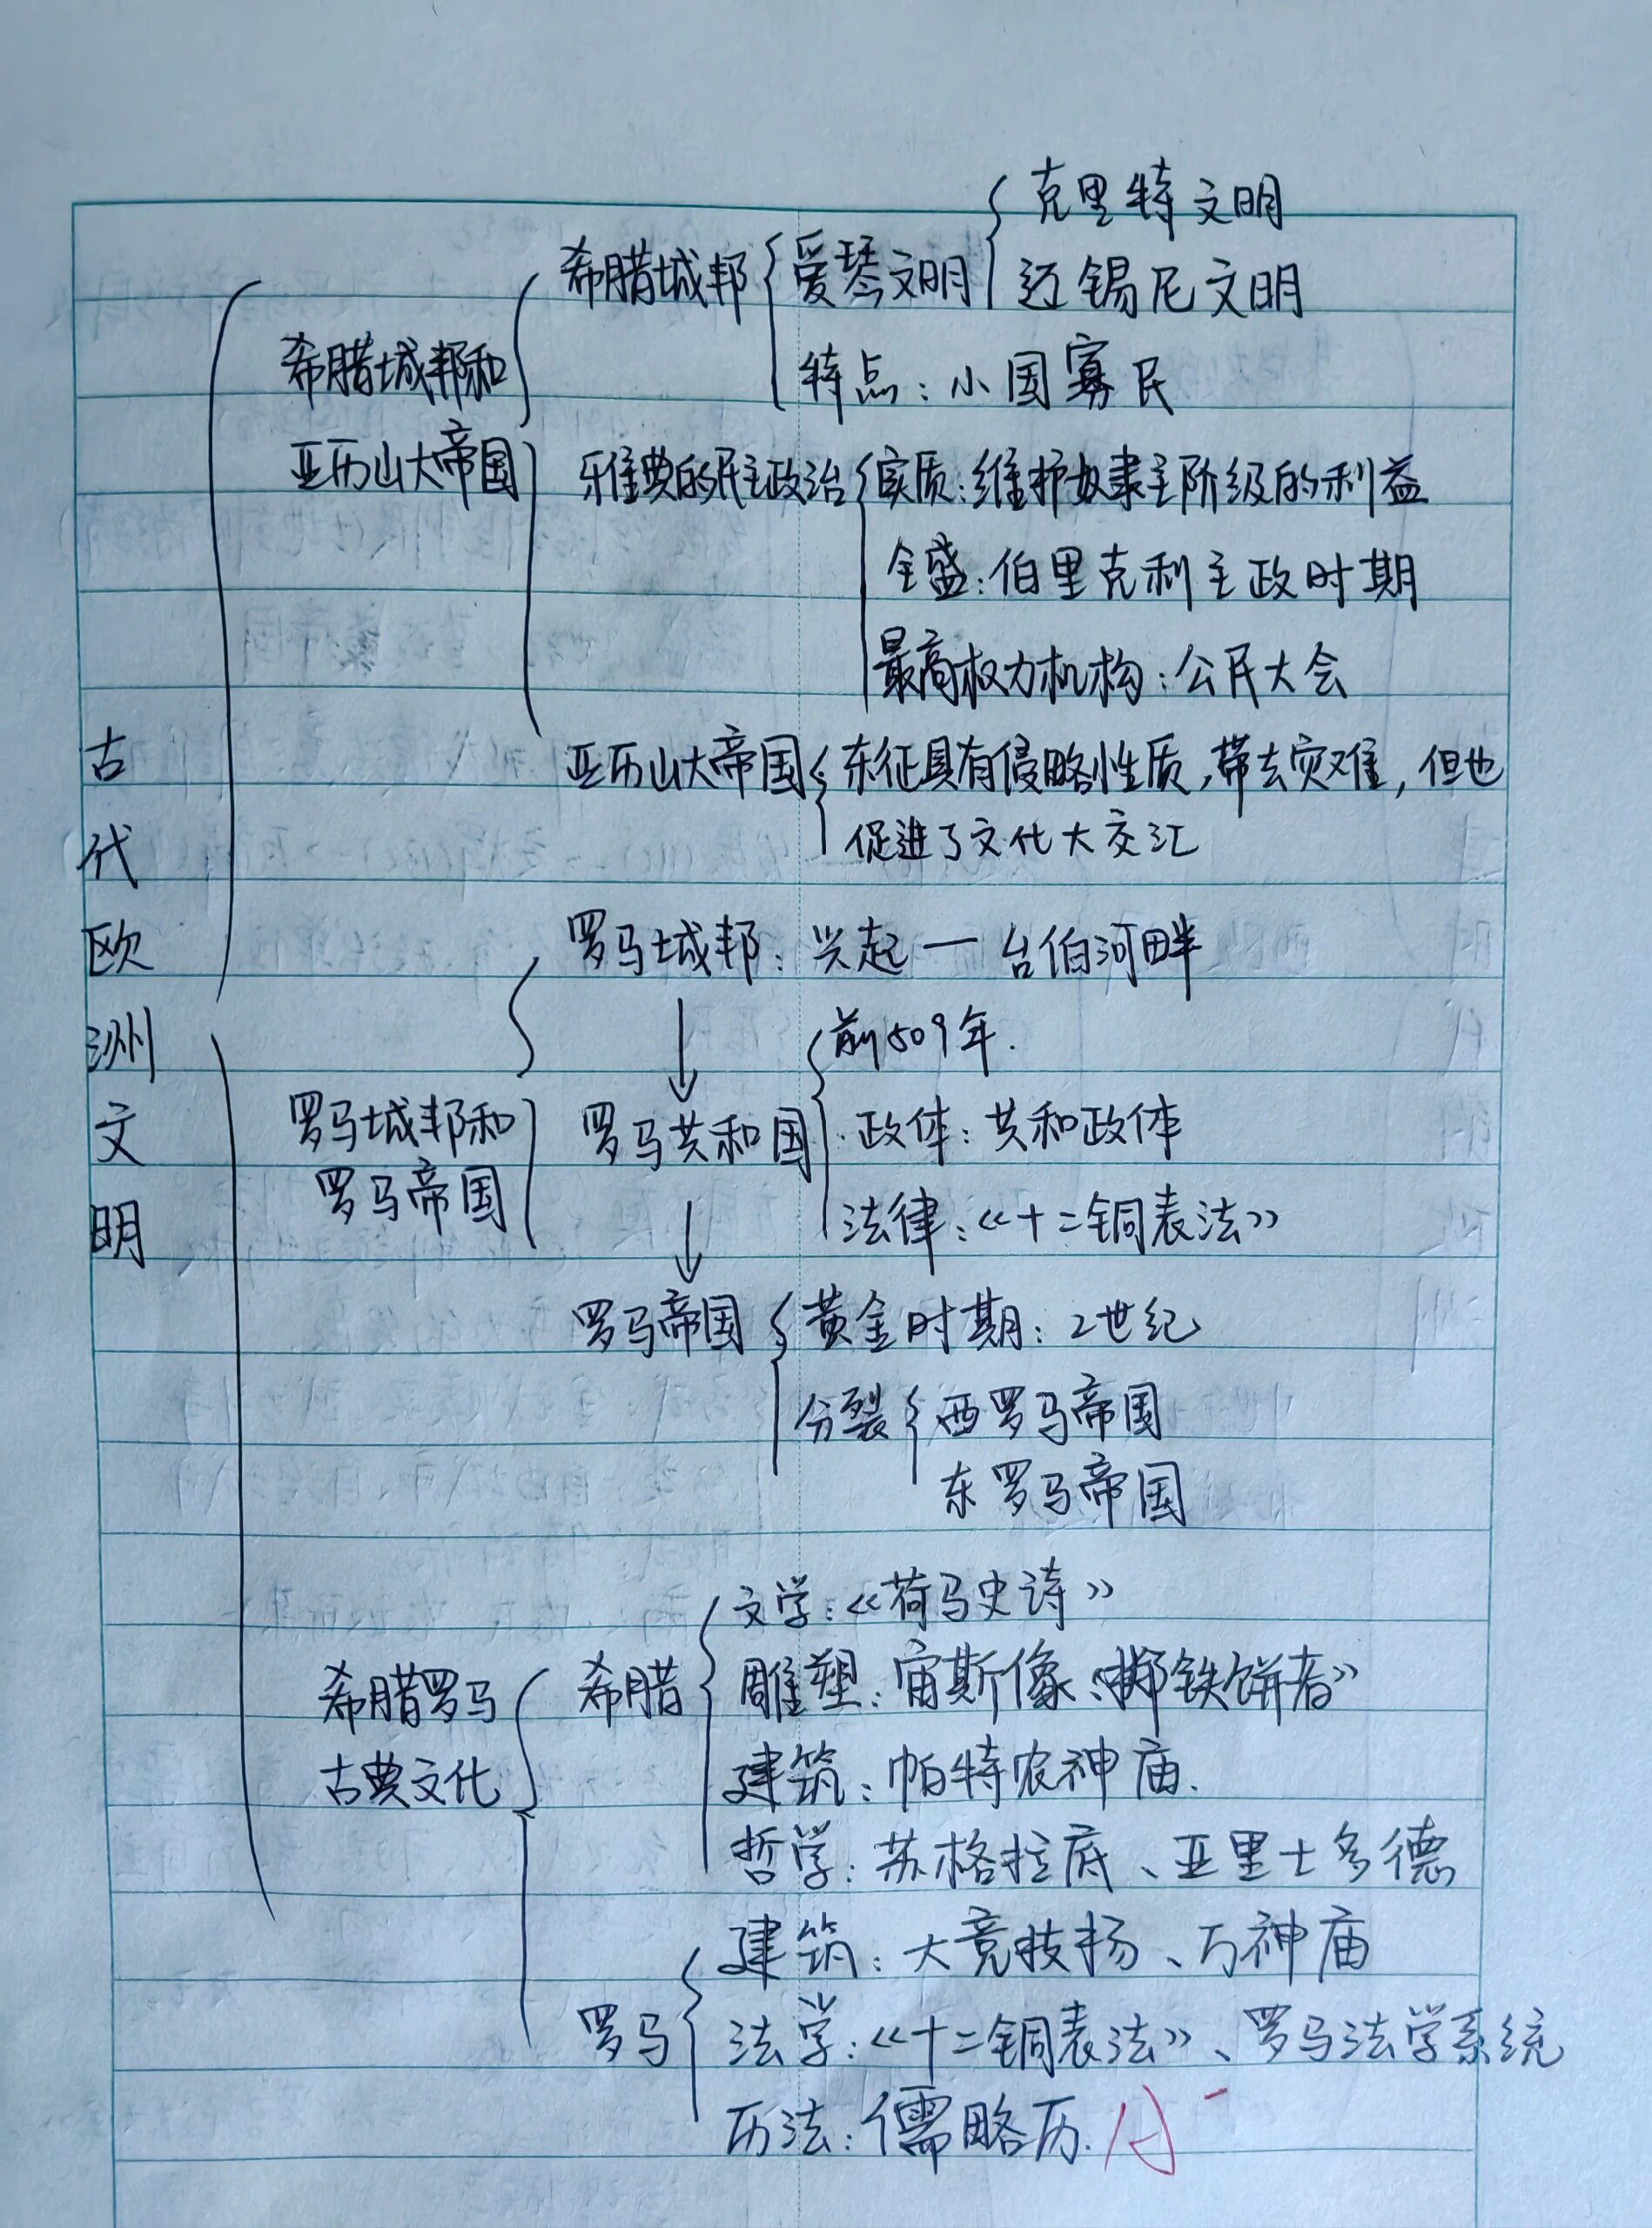 古代欧洲文明
希腊城邦和
亚历山大帝国
希腊城邦
爱琴文明
克里特文明
迈锡尼文明
特点：小国寡民
雅典的民主政治
实质：维护奴隶主阶级的利益
全盛：伯里克利主政时期
最高权力机构：公民大会
亚历山大帝国
东征具有侵略性质，带去灾难，但也
促进了文化大交汇
罗马城邦和
罗马帝国
罗马城邦：兴起一台伯河畔
罗马共和国
前509年.
政体：共和政体
法律：《十二铜表法》
罗马帝国
黄金时期：2世纪
分裂
西罗马帝国
东罗马帝国
希腊罗马
古典文化
希腊
文学：《荷马史诗》
雕塑：宙斯像、《掷铁饼者》
建筑：帕特农神庙.
哲学：苏格拉底、亚里士多德
罗马
建筑：大竞技场、万神庙
法学：《十二铜表法》、罗马法学系统
历法：儒略历.
A-